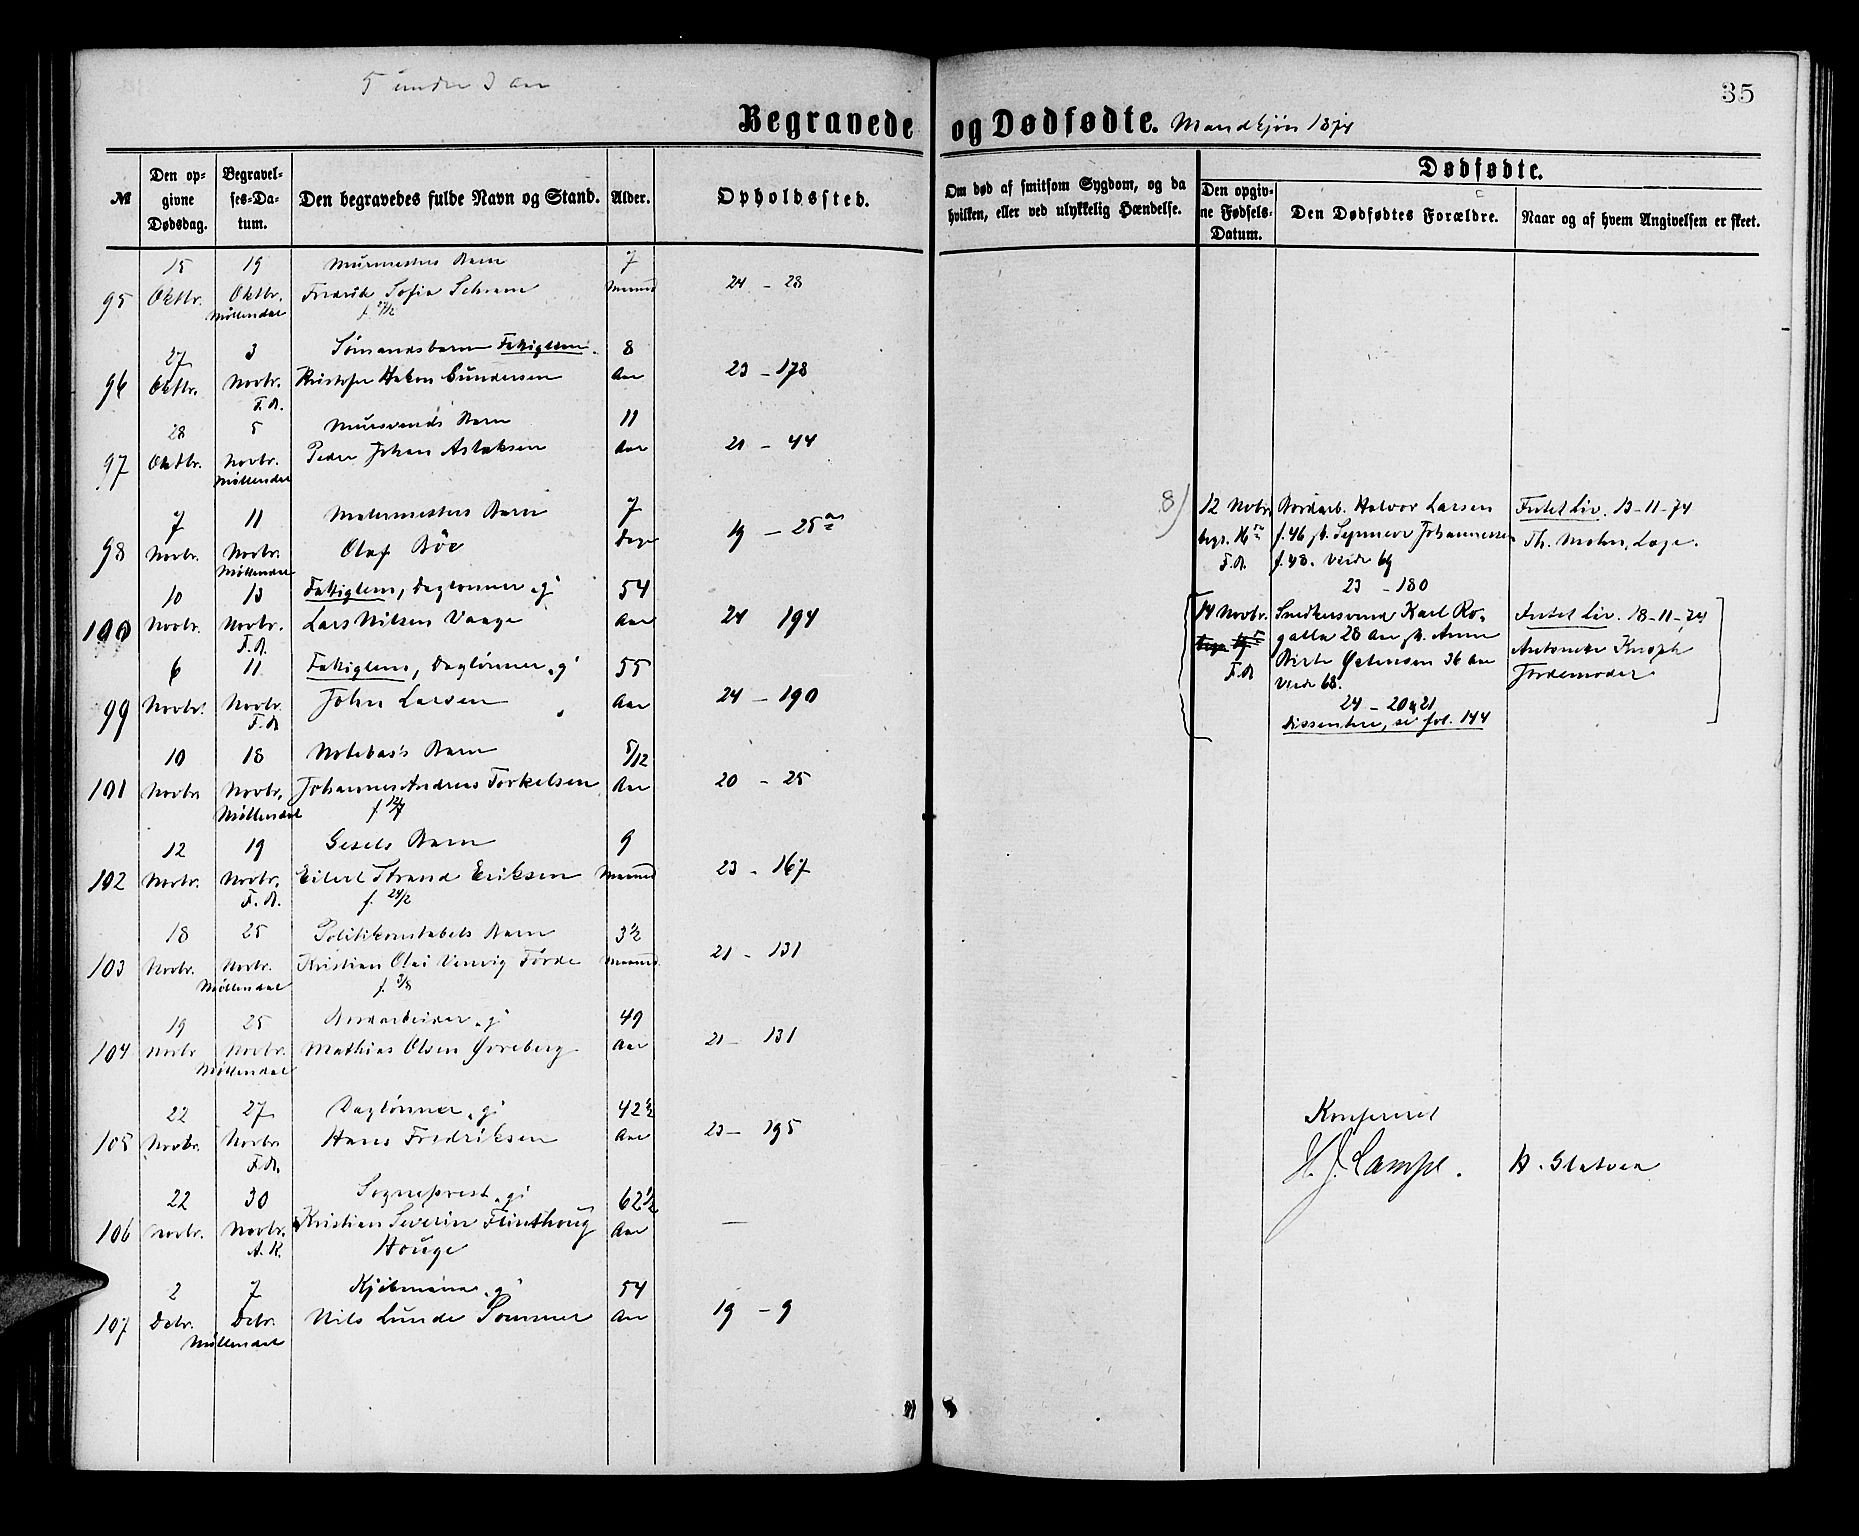 5 under 3 Aar
35
Begravede og Dødfødte. Mandkjøn 1874
№
Den opgivne Dødsdag.
Begravelses-Datum.
Den begravedes fulde Navn og Stand.
Alder.
Opholdssted.
Om død af smitsom Sygdom, og da hvilken, eller ved ulykkelig Hændelse.
Dødfødte.
Den opgivne Fødsels-Datum.
Den Dødfødtes Forældre.
Naar og af hvem Angivelsen er skeet.
15 19 Murmesters Barn 7
95 Oktbr. Oktbr. Fredrik Sofia Schram Maaned 24 - 28
Møllendal
27 3 Sømandsbarn Fattiglem. 8
96 Oktbr. Novbr. Kristofer Hakon Gundersen Aar 23 - 178
F. A.
28 5 Mursvends Barn 11
97 Oktbr. Novbr. Peder Johan Aslaksen Aar 21 - 44
Møllendal
7 11 Malermesters Barn 7
98 Novbr. Novbr. Olaf Bøe Dage 19 - 25a
Møllendal
10 13 Fattiglem, Dagtønner, g; 54
100 Novbr. Novbr. Lars Nilsen Vaage Aar 24 194
F. A.
6 11 Fattiglem, Dagtønner, g; 55
99 Novbr. Novbr. John Larsen Aar 24 - 190
F. A.
10 18 Notebas's Barn 5/12
101 Novbr. Novbr. Johannes Andreas Torkelsen Aar 20 - 25
Møllendal f. 12/7
12 19 Gesels Barn 9
102 Novbr. Novbr. Eilert Strand Eriksen Maaned 23 - 167
F. A. f. 24/2
18 25 Politikonstabels Barn 3½
103 Novbr. Novbr. Kristian Olai Venvig Førde Maaned 21 - 131
Møllendal f. 3/8
19 25 Bordarbeider, g; 49
104 Novbr. Novbr. Mathias Olsen Øvreberg Aar 21 - 131
Møllendal
22 27 Dagtønner, g; 42½
105 Novbr. Novbr. Hans Fredriksen Aar 23 - 195
F. A.
22 30 Sogneprest, g; 62½
106 Novbr. Novbr. Kristian Severin Flinthoug Aar —
A. K. Houge
2 7 Kjøbmand, g; 54
107 Debr. Debr. Nils Lunde Sommer Aar 19 - 9
Møllendal
8) 12 Novbr. Bordarb. Halvor Larsen Intet Liv. 13-11-74
begr. 16 f. 46 Johannessen Th. Mohn, Læge.
F. A. f. 48. Viede 69
23 - 180
14 Novbr. Snedkersvend Karl Ro- Intet Liv. 18-11-74
galla 28 Aar Anne Antonette Knoph
F. A. Birte Østensen 36 Aar Jordemoder
Viede 68.
24 - 20 21
Dissentere, se fol. 144
Konfereret
H. J. Lampe.